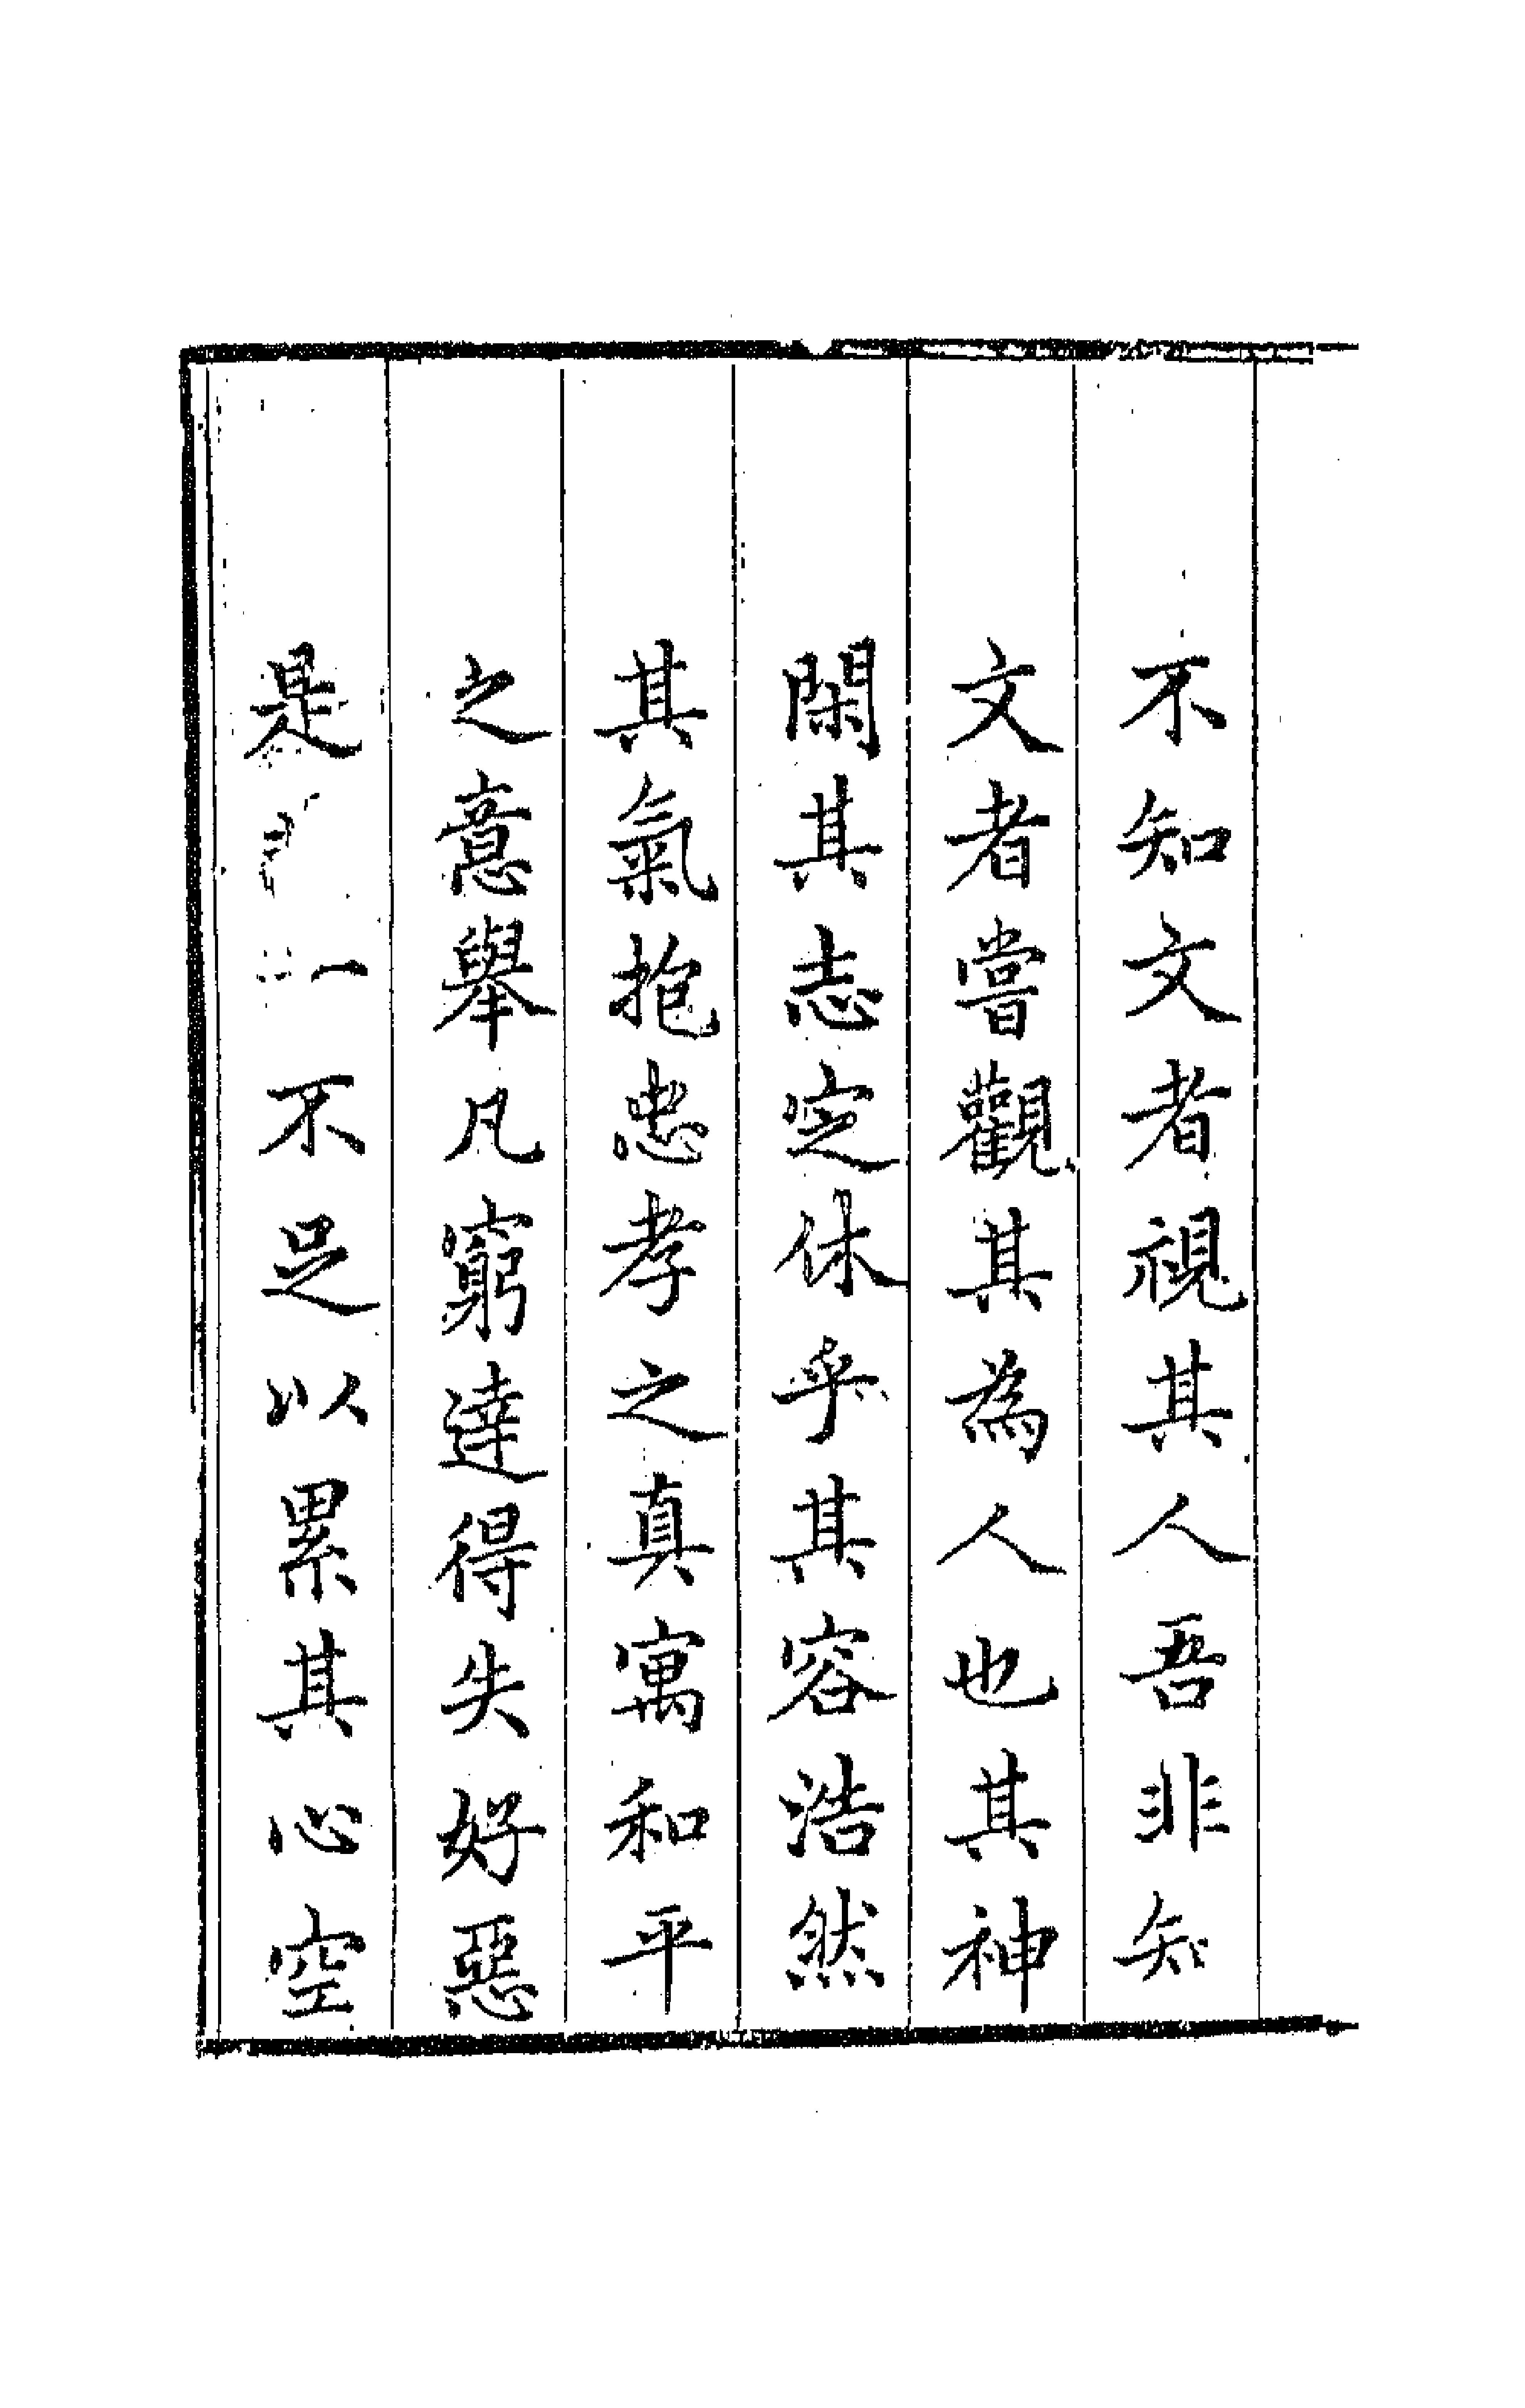 不知文者視其人吾非知
文者嘗觀其為人也其神
閑其志定休乎其容浩然
其氣抱忠孝之真寓和平
之意舉凡窮達得失好惡
是一不足以累其心空